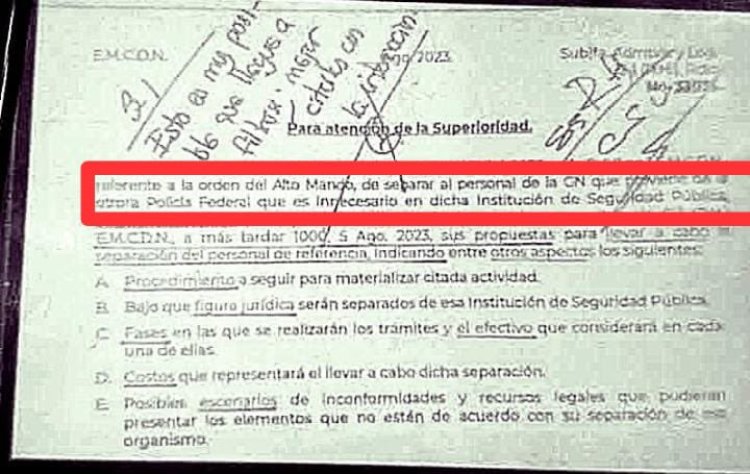 E.M.CD.N.
Ago 2023.
Subjfa.
31
Esto es muy posi-
ble que llegue a
filtrarse mejor
citarlos con
Para atención de la Superioridad.
referente a la orden del Alto Mando, de separar al personal de la GN que proviene de
otrora Policía Federal que es innecesario en dicha Institución de Seguridad Pública
E.M.CD.N., a más tardar 1000, 5 Ago. 2023, sus propuestas para llevar a cabo la
separación del personal de referencia, indicando entre otros aspectos los siguientes:
A. Procedimiento a seguir para materializar citada actividad.
B. Bajo que figura jurídica serán separados de esa Institución de Seguridad Pública.
C. Fases en las que se realizarán los trámites y el efectivo que considerará en cada
una de ellas.
D. Costos que representará el llevar a cabo dicha separación.
E. Posibles escenarios de inconformidades y recursos legales que pudieran
presentar los elementos que no están de acuerdo con su separación de ese
organismo.